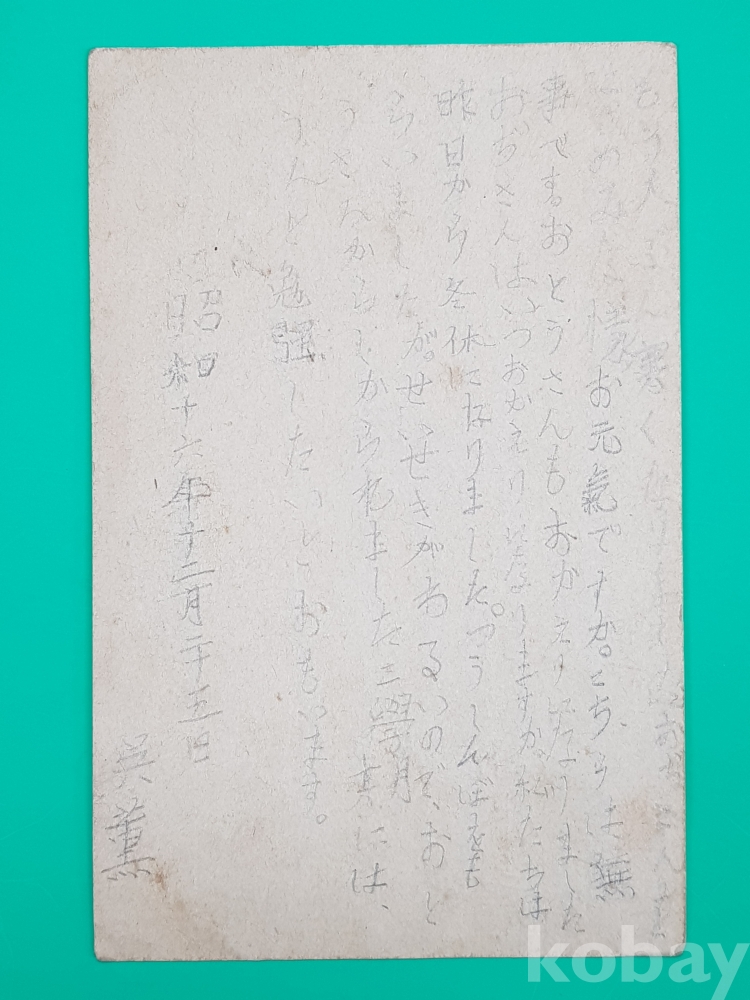 もう大ぶん寒くなりましたがおかあさん
様お元氣ですか。こちらは無
事ですおとうさんもおかえりになりました
おぢさんはいつおかえりになりますか私たちは
昨日から冬休になりました。つうしんぼをも
らいましたが。せいせきがわるいので、おと
うさんからしかられました三學期には、
うんと勉強したいとおもいます。
昭和十六年十二月二十五日
英薫
kobay